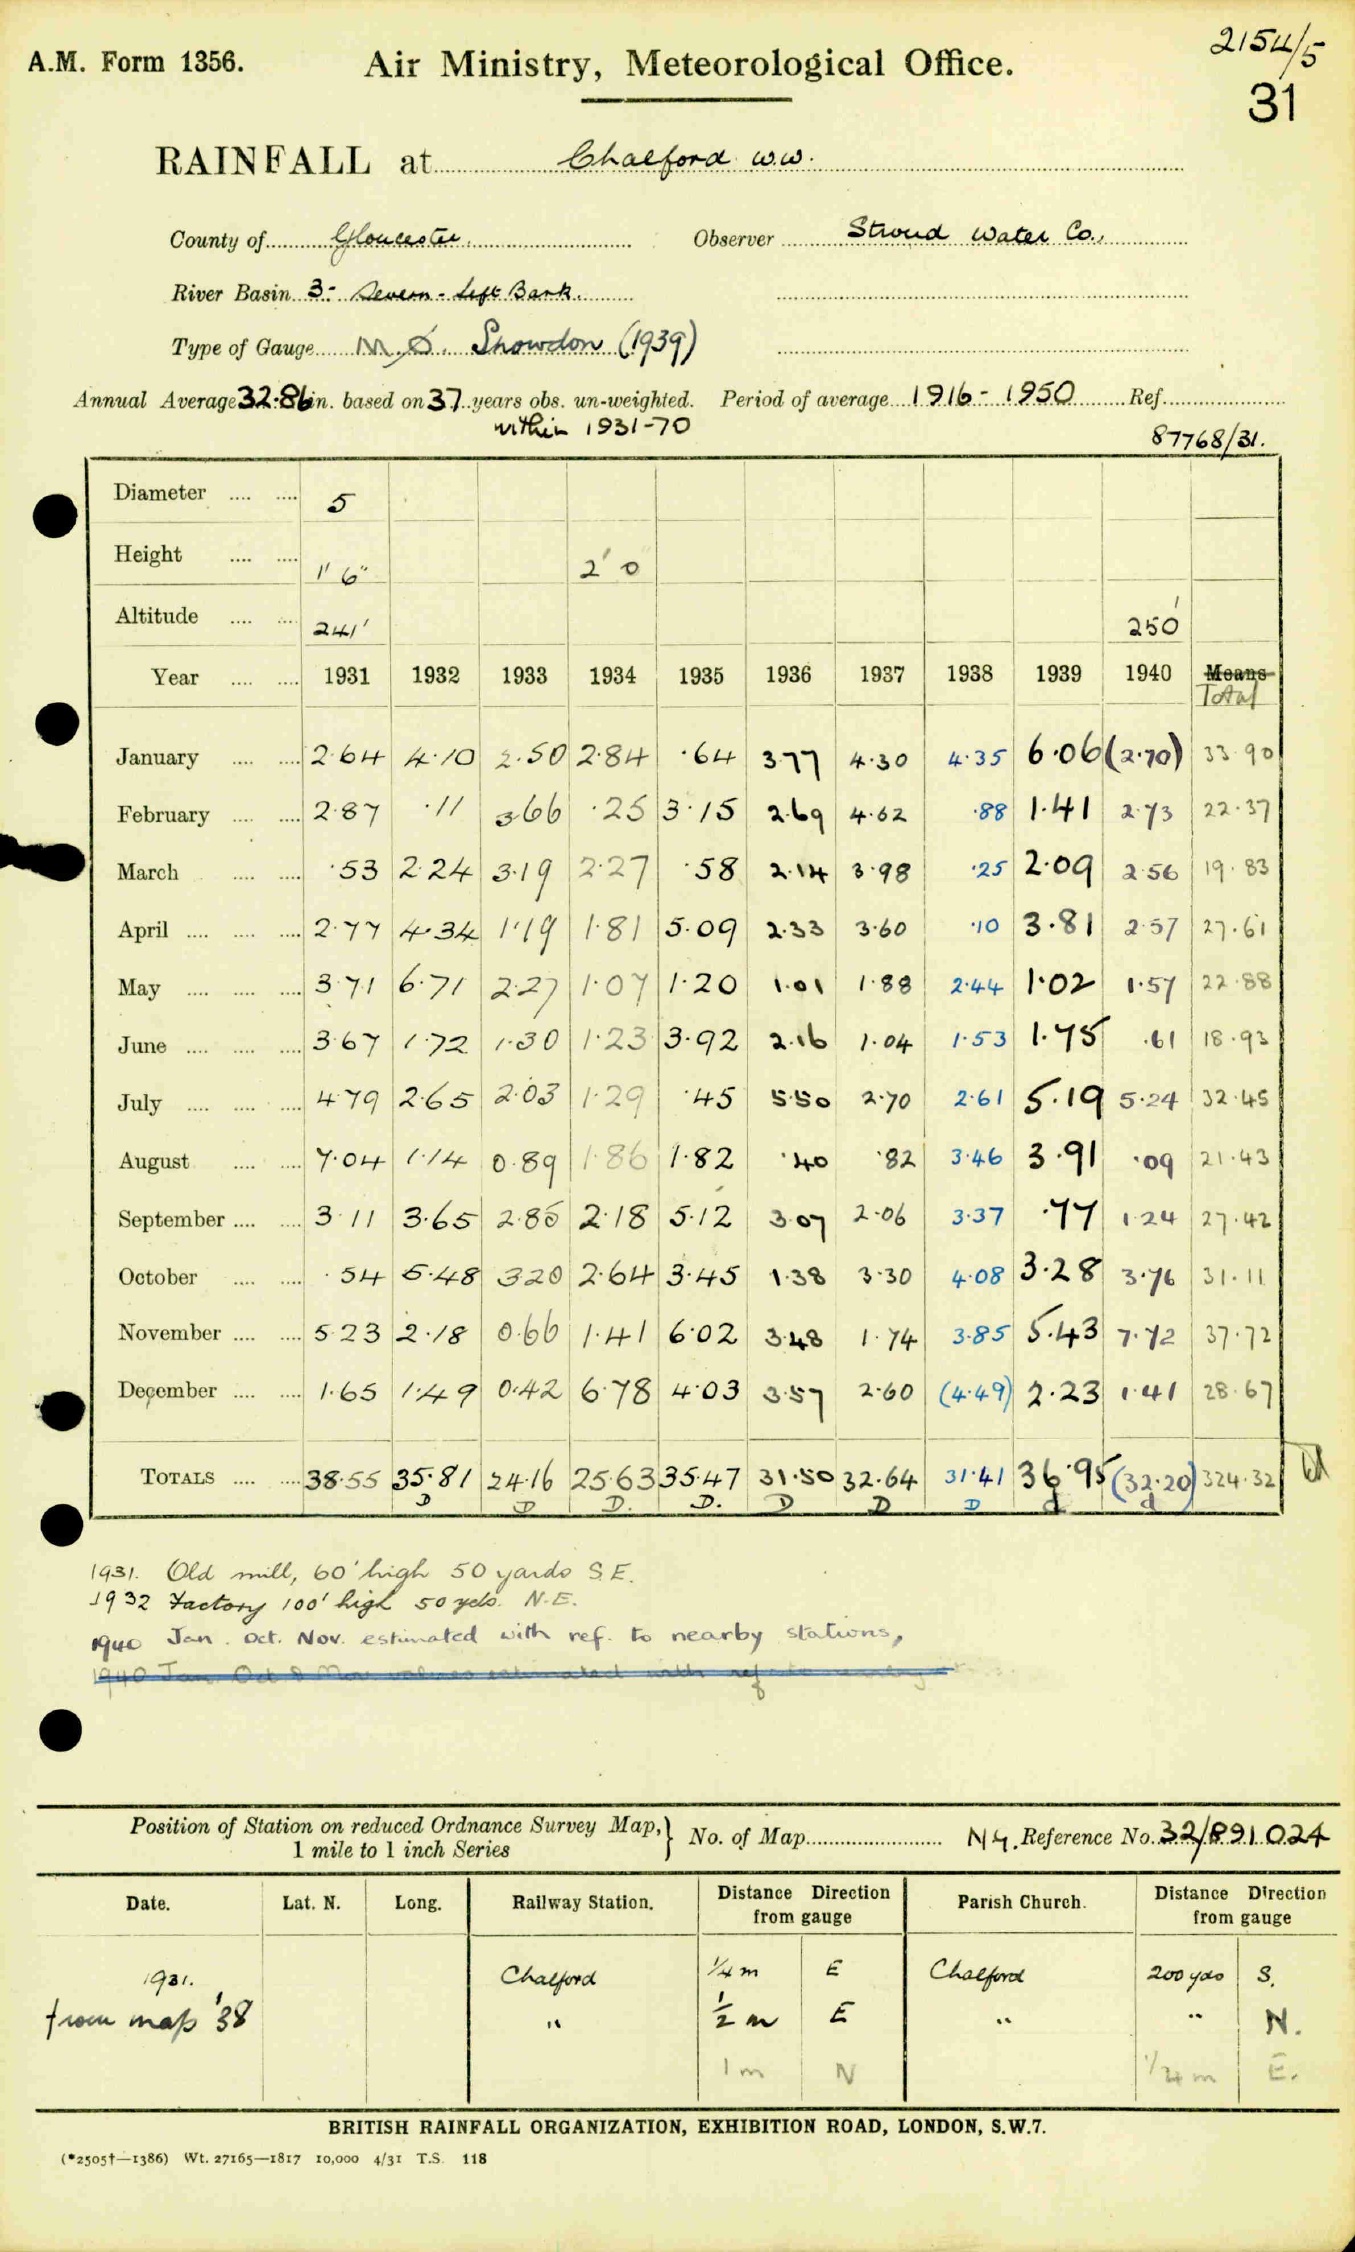 A.M. Form 1356.
Air Ministry, Meteorological Office.
2154/5
31
RAINFALL at Chalford W.W.
County of Gloucester. Observer Stroud Water Co.,
River Basin 3- Severn - Left Bank.
Type of Gauge M.O. Snowdon (1939)
Annual Average 32.86 in. based on 37 years obs. un-weighted. Period of average 1916 - 1950 Ref.
within 1931-70
87768/31.
Diameter 5
Height 1' 6" 2' 0"
Altitude 241' 250'
Year 1931 1932 1933 1934 1935 1936 1937 1938 1939 1940 Means
Total
January 2.64 4.10 2.50 2.84 .64 3.77 4.30 4.35 6.06 (2.70) 33.90
February 2.87 .11 3.66 .25 3.15 2.69 4.62 .88 1.41 2.73 22.37
March .53 2.24 3.19 2.27 .58 2.14 3.98 .25 2.09 2.56 19.83
April 2.77 4.34 1.19 1.81 5.09 2.33 3.60 .10 3.81 2.57 27.61
May 3.71 6.71 2.27 1.07 1.20 1.01 1.88 2.44 1.02 1.57 22.88
June 3.67 1.72 1.30 1.23 3.92 2.16 1.04 1.53 1.75 .61 18.93
July 4.79 2.65 2.03 1.29 .45 5.50 2.70 2.61 5.19 5.24 32.45
August 7.04 1.14 0.89 1.86 1.82 .40 .82 3.46 3.91 .09 21.43
September 3.11 3.65 2.85 2.18 5.12 3.07 2.06 3.37 .77 1.24 27.42
October .54 5.48 3.20 2.64 3.45 1.38 3.30 4.08 3.28 3.76 31.11
November 5.23 2.18 0.66 1.41 6.02 3.48 1.74 3.85 5.43 7.72 37.72
December 1.65 1.49 0.42 6.78 4.03 3.57 2.60 (4.49) 2.23 1.41 28.67
TOTALS 38.55 35.81 24.16 25.63 35.47 31.50 32.64 31.41 36.95 (32.20) 324.32
D D D. D. D D D d d
1931. Old mill, 60' high 50 yards S.E.
1932 Factory 100' high 50 yds. N.E.
1940 Jan. Oct. Nov. estimated with ref. to nearby stations,
1940 Jan Oct & Nov values estimated with ref to
Position of Station on reduced Ordnance Survey Map, 1 mile to 1 inch Series } No. of Map Reference No. 32/891024
Date. Lat. N. Long. Railway Station. Distance Direction from gauge Parish Church. Distance Direction from gauge
1931. Chalford ¼ m E Chalford 200 yds S.
from map '38 " ½ m E " " N.
1 m N ¼ m E.
BRITISH RAINFALL ORGANIZATION, EXHIBITION ROAD, LONDON, S.W.7.
(*2505†—1386) Wt. 27165—1817 10,000 4/31 T.S. 118